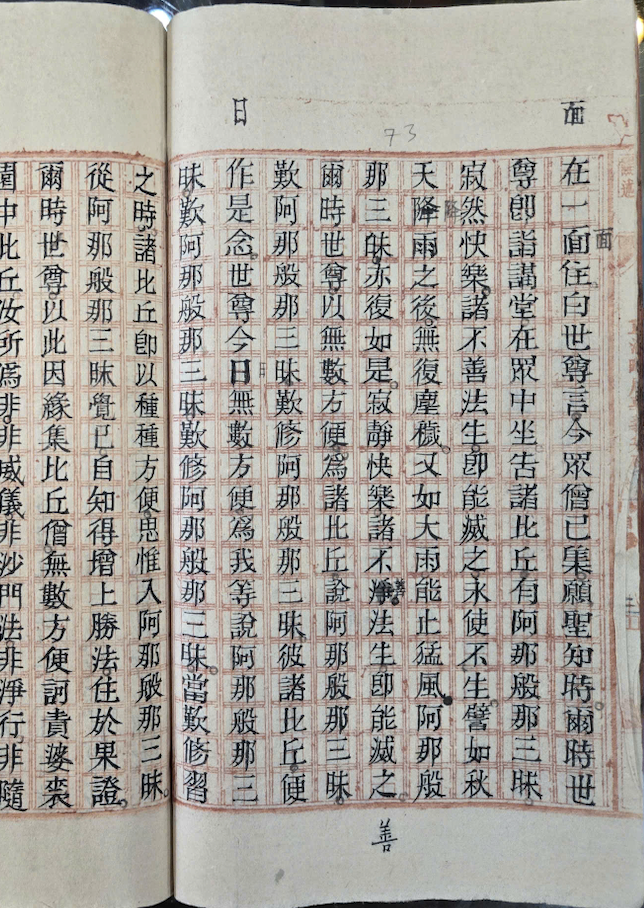 面
日
73
在一面住白世尊言今眾僧已集願聖知時爾時世
面
尊卽詣講堂在眾中坐告諸比丘有阿那般那三昧
寂然快樂諸不善法生卽能滅之永使不生譬如秋
天降雨之後無復塵穢又如大雨能止猛風阿那般
隆
那三昧亦復如是寂靜快樂諸不淨法生卽能滅之
善
爾時世尊以無數方便爲諸比丘說阿那般那三昧
歎阿那般那三昧歎修阿那般那三昧彼諸比丘便
作是念世尊今日無數方便爲我等說阿那般那三
日
昧歎阿那般那三昧歎修阿那般那三昧當歎修習
之時諸比丘卽以種種方便思惟入阿那般那三昧
從阿那般那三昧覺已自知得增上勝法住於果證
爾時世尊以此因緣集比丘僧無數方便訶責婆裘
園中比丘汝所爲非非威儀非沙門法非淨行非隨
善